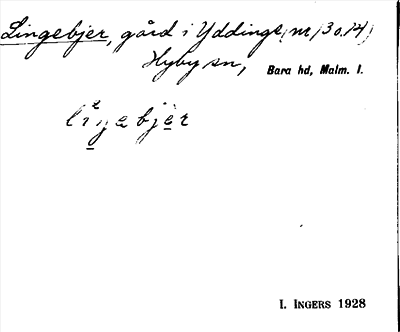 Lingebjer, gård i Yddinge (nr 13 o. 14)
Hyby sn, Bara hd, Malm. l.
I. INGERS 1928